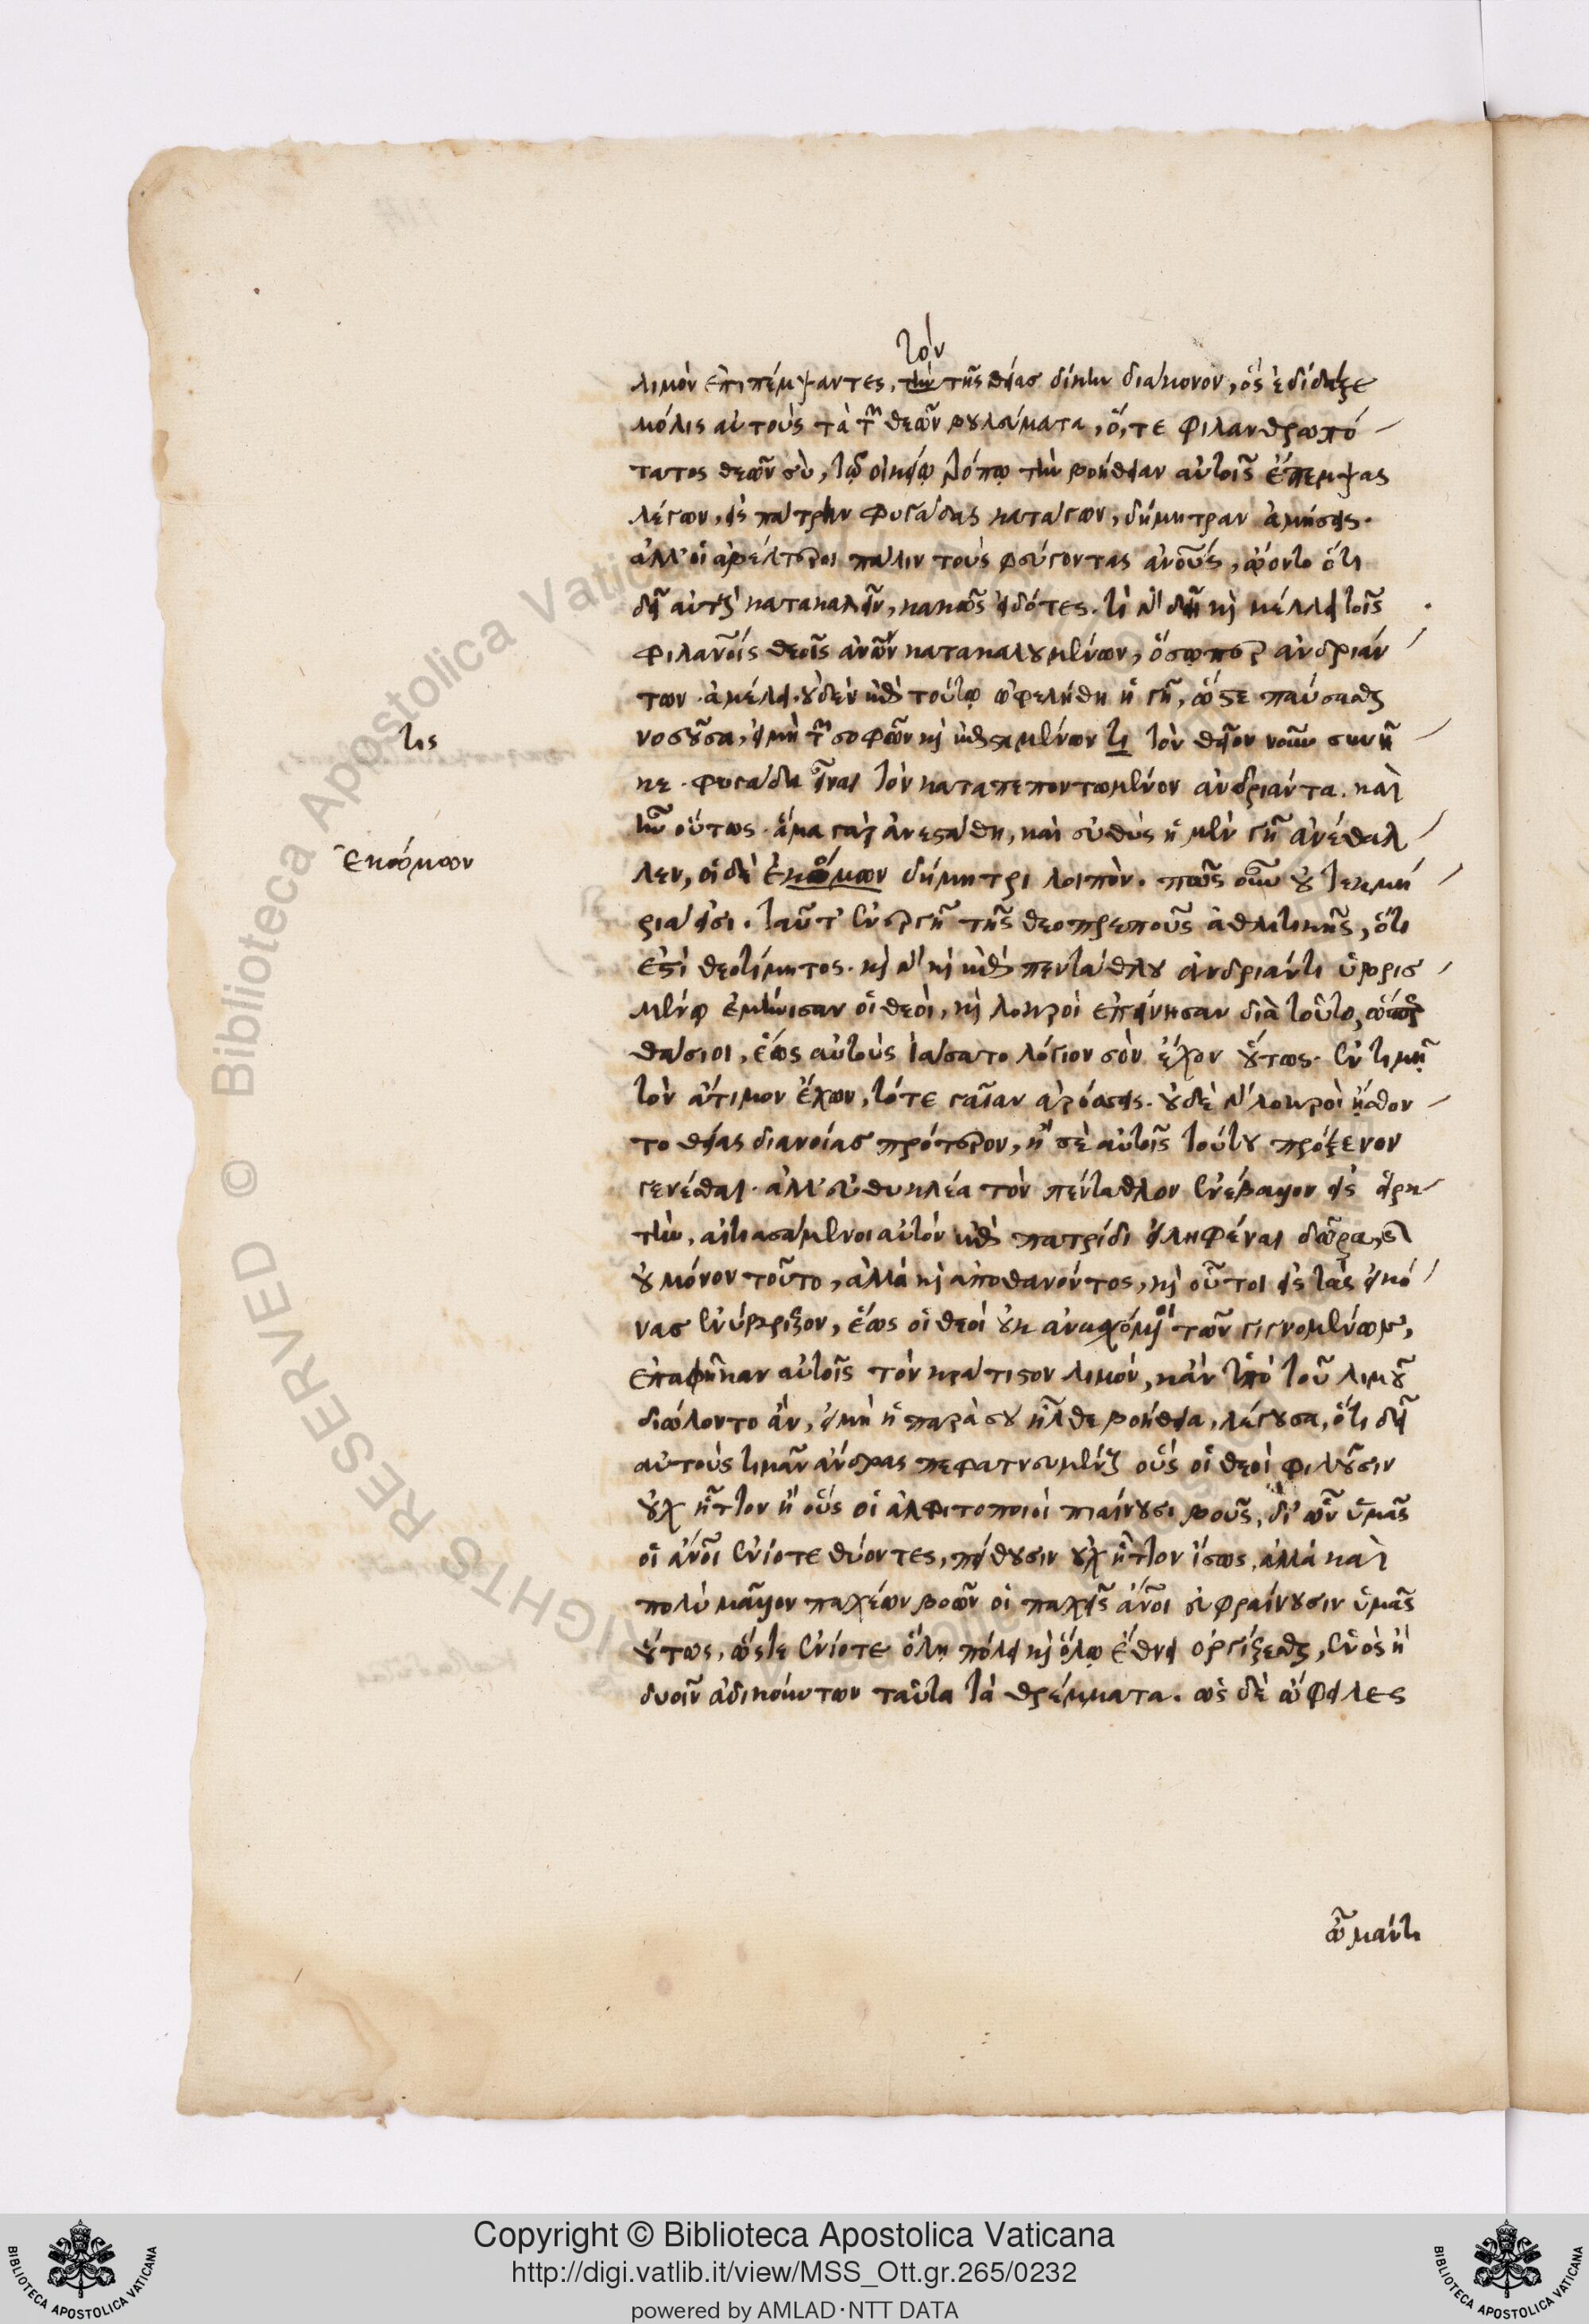 τὸν
λιμὸν ἐπιπέμψαντες, τὴν τῆς θείας δίκην διάκονον, ὃς ἐδίδαξε
μόλις αὐτοὺς τὰ τῶν θεῶν βουλεύματα, ὅ, τε φιλανθρωπό
τατος θεῶν σὺ, τῷ οἰκείῳ τρόπῳ τὴν βοήθειαν αὐτοῖς ἔπεμψας
λέγων, εἰς πάτρην φυγάδας κατάγων, δήμητραν ἀμήσεις.
ἀλλ' οἱ ἀβέλτεροι πάλιν τοὺς φεύγοντας ἀνους, ᾤοντο ὅτι
δεῖ αὐτοὺς κατακαλεῖν, κακῶς εἰδότες. τί γὰρ δὴ καὶ μέλλει τοῖς
φιλανοις θεοῖς ἀνων κατακαλουμένων, ὅσῳπερ ἀνδριάν
των. ἀμέλει. οὐδὲν ἐπὶ τούτῳ ὠφελήθη ἡ γῆ, ὥστε παύσασθαι
νοσοῦσα, εἰ μὴ τῶν σοφῶν καὶ τι τὸν θεῖον νοῦν συνῆ
τις
κε. φυγάδα εἶναι τὸν καταπεποντωμένον ἀνδριάντα. καὶ
ἦν οὕτως. ἅμα γὰρ ἀνεστάθη, καὶ εὐθὺς ἡ μὲν γῆ ἀνέθαλ
λεν, οἱ δὲ ἐκώμων δήμητρι λοιπὸν. πῶς οὖν οὐ τεκμή
ἐκόμων
ρια εἰσι. ταῦτ' ἐνεργῆ τῆς θεοπρεποῦς ἀθλητικῆς, ὅτι
ἐστὶ θεοτίμητος. καὶ γὰρ καὶ ἐπὶ πεντάθλου ἀνδριάντι ὑβρισ
μένῳ ἐμήνισαν οἱ θεοὶ, καὶ λοκροὶ ἐπείνησαν διὰ τοῦτο, ὥσπερ
θάσιοι, ἕως αὐτοὺς ἰάσατο λόγιον σὸν ἔχον οὕτως. ἐν τιμῇ
τὸν ἄτιμον ἔχων, τότε γαῖαν ἀρόσεις. οὐδὲ γὰρ λοκροὶ ᾔσθον
το θείας διανοίας πρότερον, ἢ σὲ αὐτοῖς τούτου πρόξενον
γενέσθαι. ἀλλ' εὐθυκλέα τὸν πένταθλον ἐνέβαλλον εἰς εἱρκ
τὴν, αἰτιασάμενοι αὐτὸν ἐπὶ πατρίδι εἰληφέναι δῶρα, καὶ
οὐ μόνον τοῦτο, ἀλλὰ καὶ ἀποθανόντος, καὶ οὗτοι εἰς τὰς εἰκό
νας ἐνύβριζον, ἕως οἱ θεοὶ οὐκ ἀνασχόμενοι τῶν γιγνομένων,
ἐπαφῆκαν αὐτοῖς τὸν κράτιστον λιμόν, κἂν ὑπὸ τοῦ λιμοῦ
διώλοντο ἂν, εἰ μὴ ἡ παρὰ σοῦ ἦλθε βοήθεια, λέγουσα, ὅτι δεῖ
αὐτοὺς τιμᾶν ἄνδρας πεφατνευμένους οὓς οἱ θεοὶ φιλοῦσιν
οὐχ ἧττον ἢ οὓς οἱ ἀλφιτοποιοὶ πιαίνουσι βοῦς, δι' ὧν ὑμᾶς
οἱ ἄνοι ἐνίοτε θύοντες, πείθουσιν οὐχ ἧττον ἴσως, ἀλλὰ καὶ
πολὺ μᾶλλον παχέων βοῶν οἱ παχεῖς ἄνοι εὐφραίνουσιν ὑμᾶς
οὕτως, ὥστε ἐνίοτε ὅλῃ πόλει καὶ ὅλῳ ἔθνει ὀργίζεσθαι, ἑνὸς ἢ
δυοῖν ἀδικούντων ταῦτα τὰ θρέμματα. ὡς δὲ ὤφελες
ὦ μάντι
Copyright © Biblioteca Apostolica Vaticana
http://digi.vatlib.it/view/MSS_Ott.gr.265/0232
powered by AMLAD·NTT DATA
BIBLIOTECA APOSTOLICA VATICANA
BIBLIOTECA APOSTOLICA VATICANA